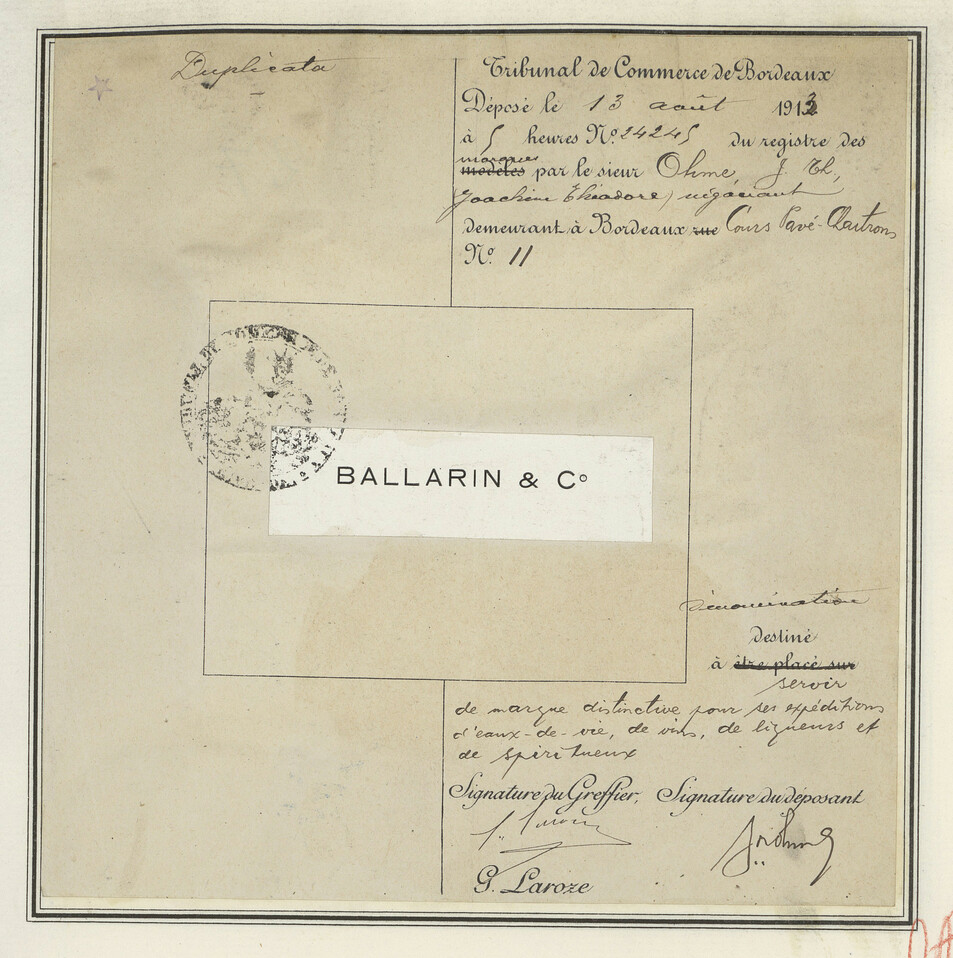 Duplicata
Tribunal de Commerce de Bordeaux
Déposé le 13 août 1913
à 5 heures No. 24245 du registre des
marques
modèles par le sieur Ohme, J. Th,
(Joachim Théodore) négociant
demeurant à Bordeaux rue Cours Pavé-Chartrons
No. 11
BALLARIN & Co
dénomination
destiné
à être placé sur
servir
de marque distinctive pour ses expéditions
d'eaux-de-vie, de vins, de liqueurs et
de spiritueux
Signature du Greffier, Signature du déposant
G. Laroze